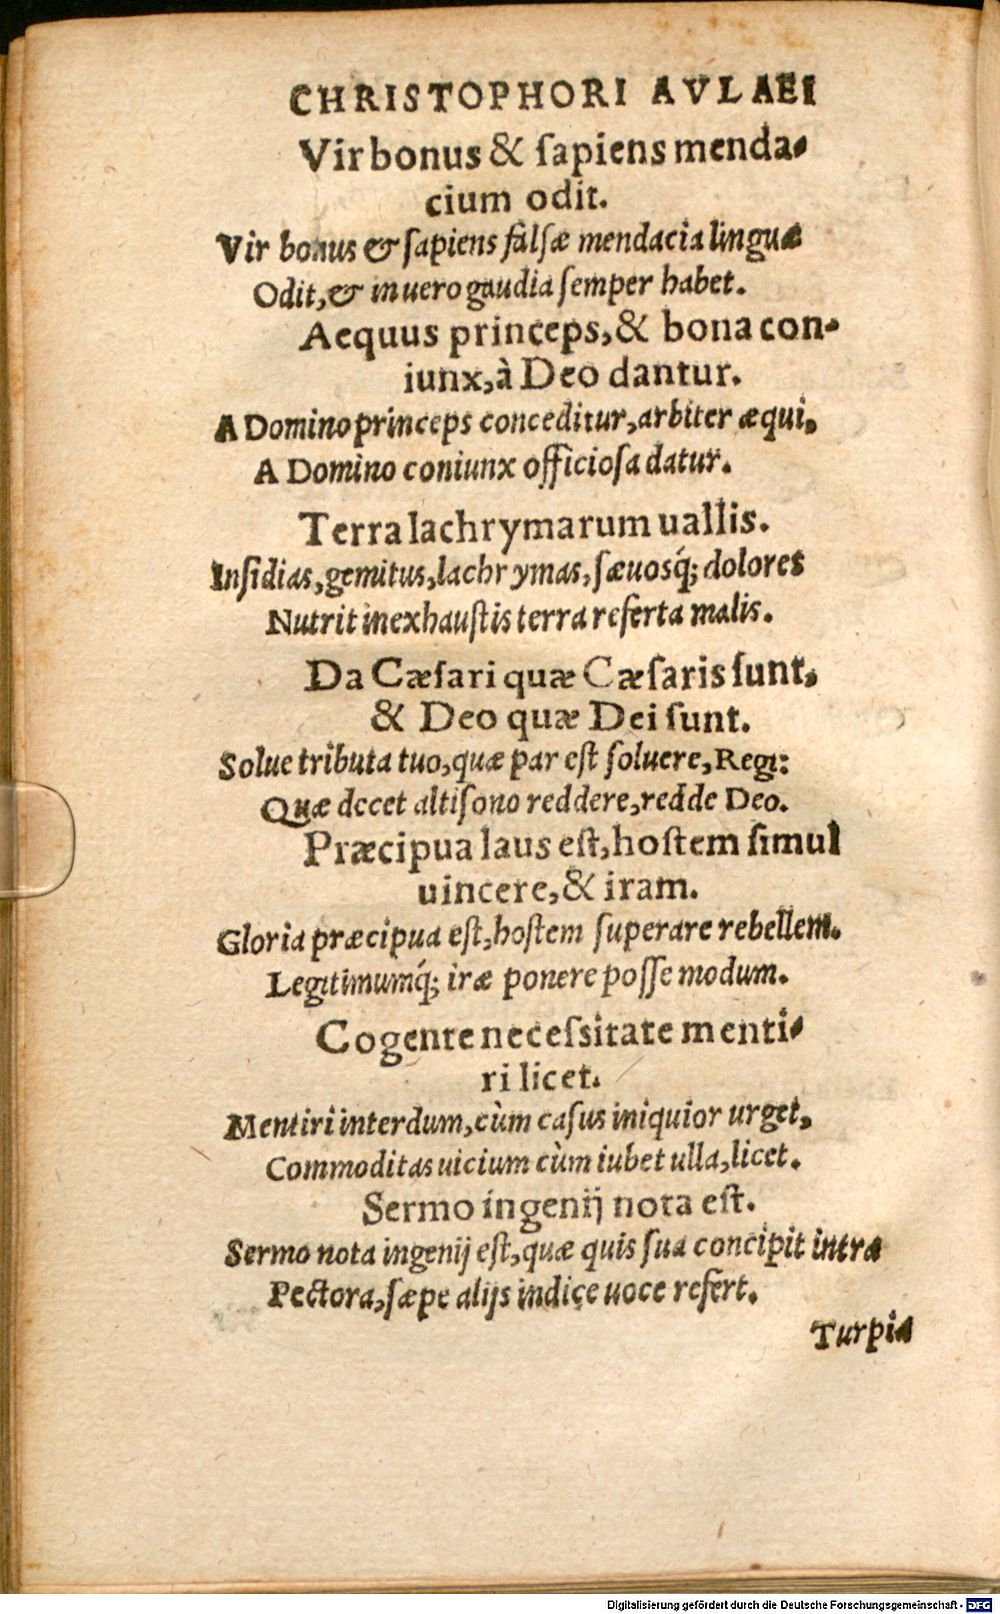 CHRISTOPHORI AVLAEI
Vir bonus & ſapiens menda-
cium odit.
Vir bonus & ſapiens falſæ mendacia linguæ
Odit, & in uero gaudia ſemper habet.
Aequus princeps, & bona con-
iunx, à Deo dantur.
A Domino princeps conceditur, arbiter æqui,
A Domino coniunx officioſa datur.
Terra lachrymarum uallis.
Inſidias, gemitus, lachrymas, ſæuosq́; dolores
Nutrit inexhauſtis terra referta malis.
Da Cæſari quæ Cæſaris ſunt,
& Deo quæ Dei ſunt.
Solue tributa tuo, quæ par eſt ſoluere, Regi:
Quæ decet altiſono reddere, redde Deo.
Præcipua laus eſt, hoſtem ſimul
uincere, & iram.
Gloria præcipua eſt, hoſtem ſuperare rebellem.
Legitimumq́; iræ ponere poſſe modum.
Cogente neceſsitate menti-
ri licet.
Mentiri interdum, cùm caſus iniquior urget,
Commoditas uicium cùm iubet ulla, licet.
Sermo ingenij nota eſt.
Sermo nota ingenij eſt, quæ quis ſua concipit intra
Pectora, ſæpe alijs indice uoce refert.
Turpia
Digitalisierung gefördert durch die Deutsche Forschungsgemeinschaft - DFG